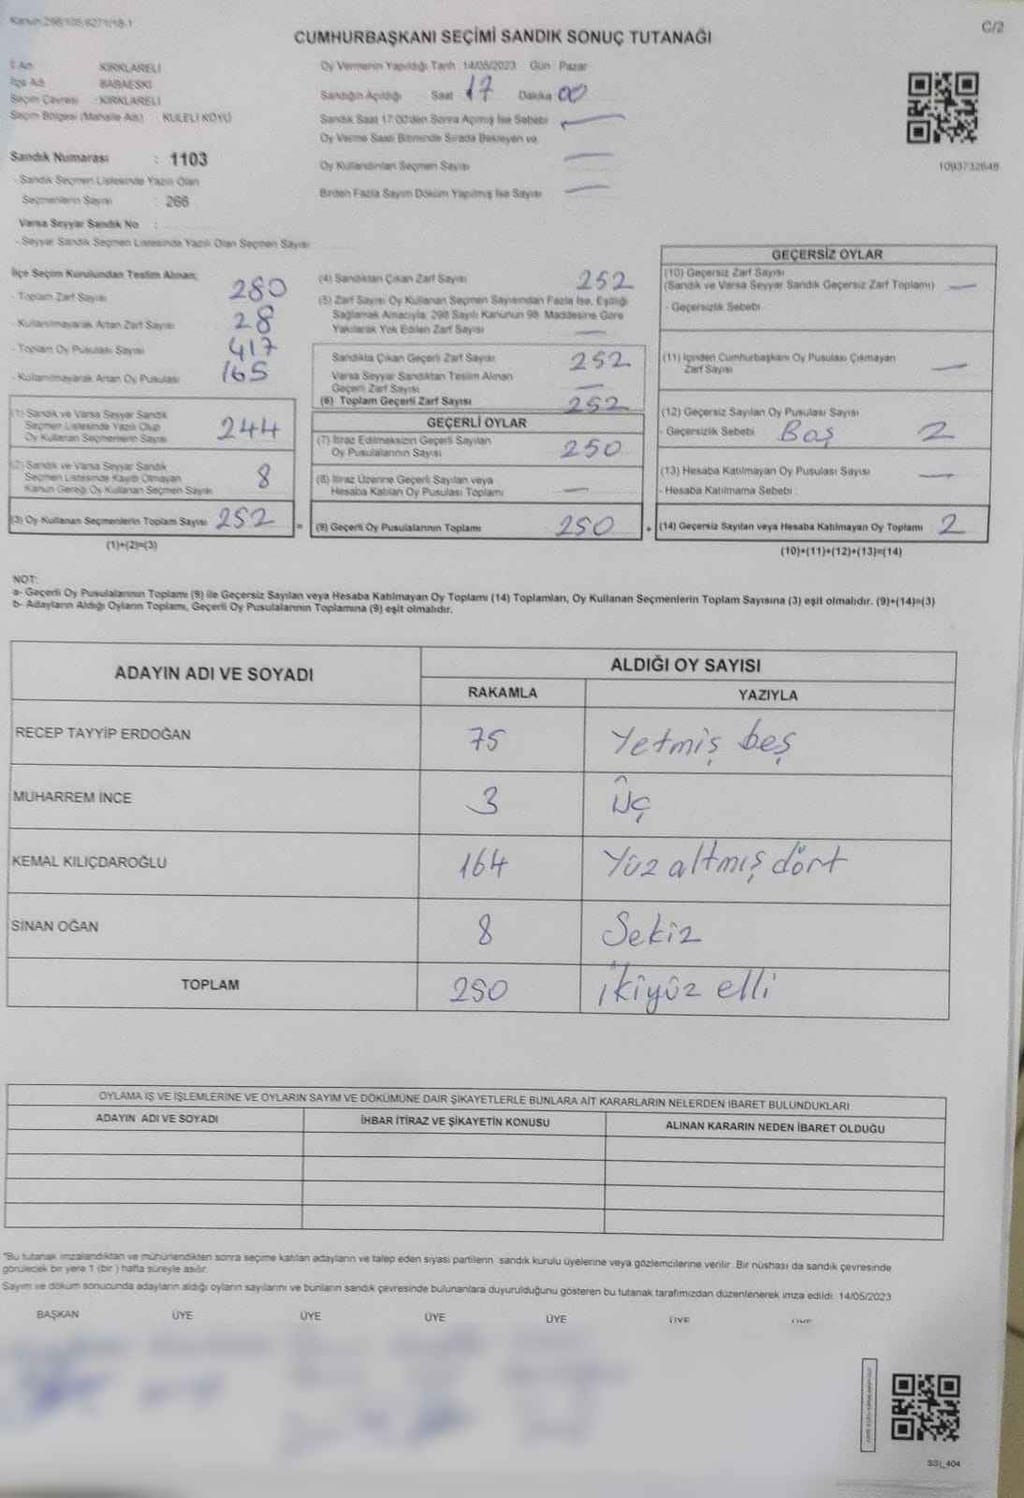 Kanun:298/105/6271/18-1
C/2
CUMHURBAŞKANI SEÇİMİ SANDIK SONUÇ TUTANAĞI
İl Adı : KIRKLARELİ
İlçe Adı : BABAESKİ
Seçim Çevresi : KIRKLARELİ
Seçim Bölgesi (Mahalle Adı) : KULELİ KÖYÜ
Sandık Numarası : 1103
- Sandık Seçmen Listesinde Yazılı Olan
Seçmenlerin Sayısı : 266
Varsa Seyyar Sandık No :
- Seyyar Sandık Seçmen Listesinde Yazılı Olan Seçmen Sayısı
Oy Vermenin Yapıldığı Tarih 14/05/2023 Gün : Pazar
Sandığın Açıldığı Saat 17 Dakika 00
Sandık Saat 17:00'den Sonra Açılmış İse Sebebi —
Oy Verme Saati Bitiminde Sırada Bekleyen ve
Oy Kullandırılan Seçmen Sayısı —
Birden Fazla Sayım Döküm Yapılmış İse Sayısı —
1093732648
İlçe Seçim Kurulundan Teslim Alınan;
- Toplam Zarf Sayısı 280
- Kullanılmayarak Artan Zarf Sayısı 28
- Toplam Oy Pusulası Sayısı 417
- Kullanılmayarak Artan Oy Pusulası 165
(1) Sandık ve Varsa Seyyar Sandık
Seçmen Listesinde Yazılı Olup
Oy Kullanan Seçmenlerin Sayısı 244
(2) Sandık ve Varsa Seyyar Sandık
Seçmen Listesinde Kayıtlı Olmayan
Kanun Gereği Oy Kullanan Seçmen Sayısı 8
(3) Oy Kullanan Seçmenlerin Toplam Sayısı 252
(1)+(2)=(3)
(4) Sandıktan Çıkan Zarf Sayısı 252
(5) Zarf Sayısı Oy Kullanan Seçmen Sayısından Fazla İse, Eşitliği
Sağlamak Amacıyla, 298 Sayılı Kanunun 98. Maddesine Göre
Yakılarak Yok Edilen Zarf Sayısı —
Sandıkta Çıkan Geçerli Zarf Sayısı 252
Varsa Seyyar Sandıktan Teslim Alınan
Geçerli Zarf Sayısı —
(6) Toplam Geçerli Zarf Sayısı 252
GEÇERLİ OYLAR
(7) İtiraz Edilmeksizin Geçerli Sayılan
Oy Pusulalarının Sayısı 250
(8) İtiraz Üzerine Geçerli Sayılan veya
Hesaba Katılan Oy Pusulası Toplamı —
= (9) Geçerli Oy Pusulalarının Toplamı 250
GEÇERSİZ OYLAR
(10) Geçersiz Zarf Sayısı
(Sandık ve Varsa Seyyar Sandık Geçersiz Zarf Toplamı) —
- Geçersizlik Sebebi :
(11) İçinden Cumhurbaşkanı Oy Pusulası Çıkmayan
Zarf Sayısı —
(12) Geçersiz Sayılan Oy Pusulası Sayısı
- Geçersizlik Sebebi : Boş 2
(13) Hesaba Katılmayan Oy Pusulası Sayısı —
- Hesaba Katılmama Sebebi :
+ (14) Geçersiz Sayılan veya Hesaba Katılmayan Oy Toplamı 2
(10)+(11)+(12)+(13)=(14)
NOT:
a- Geçerli Oy Pusulalarının Toplamı (9) ile Geçersiz Sayılan veya Hesaba Katılmayan Oy Toplamı (14) Toplamları, Oy Kullanan Seçmenlerin Toplam Sayısına (3) eşit olmalıdır. (9)+(14)=(3)
b- Adayların Aldığı Oyların Toplamı, Geçerli Oy Pusulalarının Toplamına (9) eşit olmalıdır.
ADAYIN ADI VE SOYADI ALDIĞI OY SAYISI
RAKAMLA YAZIYLA
RECEP TAYYİP ERDOĞAN 75 Yetmiş beş
MUHARREM İNCE 3 Üç
KEMAL KILIÇDAROĞLU 164 Yüz altmış dört
SİNAN OĞAN 8 Sekiz
TOPLAM 250 ikiyüz elli
OYLAMA İŞ VE İŞLEMLERİNE VE OYLARIN SAYIM VE DÖKÜMÜNE DAİR ŞİKAYETLERLE BUNLARA AİT KARARLARIN NELERDEN İBARET BULUNDUKLARI
ADAYIN ADI VE SOYADI İHBAR İTİRAZ VE ŞİKAYETİN KONUSU ALINAN KARARIN NEDEN İBARET OLDUĞU
"Bu tutanak imzalandıktan ve mühürlendikten sonra seçime katılan adayların ve talep eden siyasi partilerin sandık kurulu üyelerine veya gözlemcilerine verilir. Bir nüshası da sandık çevresinde
görülecek bir yere 1 (bir ) hafta süreyle asılır.
Sayım ve döküm sonucunda adayların aldığı oyların sayılarını ve bunların sandık çevresinde bulunanlara duyurulduğunu gösteren bu tutanak tarafımızdan düzenlenerek imza edildi. 14/05/2023
BAŞKAN ÜYE ÜYE ÜYE ÜYE ÜYE ÜYE
SSİ_404